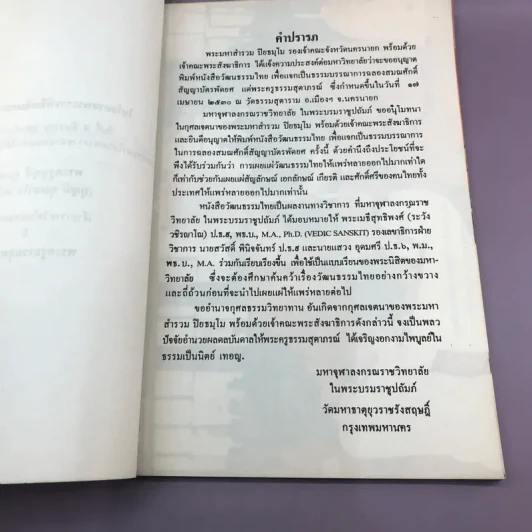 คำปรารภ
พระมหาสำรวม ปิยธมฺโม รองเจ้าคณะจังหวัดนครนายก พร้อมด้วย
เจ้าคณะพระสังฆาธิการ ได้แจ้งความประสงค์ต่อมหาวิทยาลัยว่าจะขออนุญาต
พิมพ์หนังสือวัฒนธรรมไทย เพื่อแจกเป็นธรรมบรรณาการฉลองสมณศักดิ์
สัญญาบัตรพัดยศ แด่พระครูธรรมสุตาภรณ์ ซึ่งกำหนดขึ้นในวันที่ ๑๗
เมษายน ๒๕๓๐ ณ วัดธรรมสุตาราม อ.เมืองฯ จ.นครนายก
มหาจุฬาลงกรณราชวิทยาลัย ในพระบรมราชูปถัมภ์ ขออนุโมทนา
ในกุศลเจตนาของพระมหาสำรวม ปิยธมฺโม พร้อมด้วยเจ้าคณะพระสังฆาธิการ
และยินดีอนุญาตให้พิมพ์หนังสือวัฒนธรรมไทย เพื่อแจกเป็นธรรมบรรณาการ
ในการฉลองสมณศักดิ์สัญญาบัตรพัดยศ ครั้งนี้ ด้วยคำนึงถึงประโยชน์ที่จะ
พึงได้รับร่วมกันว่า การเผยแผ่วัฒนธรรมไทยให้แพร่หลายออกไปมากเท่าใด
ก็เท่ากับช่วยกันเผยแผ่สัญลักษณ์ เอกลักษณ์ เกียรติ และศักดิ์ศรีของคนไทยทั้ง
ประเทศให้แพร่หลายออกไปมากเท่านั้น
หนังสือวัฒนธรรมไทยเป็นผลงานทางวิชาการ ที่มหาจุฬาลงกรณราช
วิทยาลัย ในพระบรมราชูปถัมภ์ ได้มอบหมายให้ พระเมธีสุทธิพงศ์ (ระวัง
วชิรญาโณ) ป.ธ.๙, พธ.บ., M.A., Ph.D. (VEDIC SANSKIT) รองเลขาธิการฝ่าย
วิชาการ นายสวัสดิ์ พินิจจันทร์ ป.ธ.๙ และนายแสวง อุดมศรี ป.ธ.๖, พ.ม.,
พธ.บ., M.A. ร่วมกันเรียบเรียงขึ้น เพื่อใช้เป็นแบบเรียนของพระนิสิตของมหา-
วิทยาลัย ซึ่งจะต้องศึกษาค้นคว้าเรื่องวัฒนธรรมไทยอย่างกว้างขวาง
และถี่ถ้วนก่อนที่จะนำไปเผยแผ่ให้แพร่หลายต่อไป
ขออำนาจกุศลธรรมวิทยาทาน อันเกิดจากกุศลเจตนาของพระมหา
สำรวม ปิยธมฺโม พร้อมด้วยเจ้าคณะพระสังฆาธิการดังกล่าวนี้ จงเป็นพลว
ปัจจัยอำนวยผลดลบันดาลให้พระครูธรรมสุตาภรณ์ ได้เจริญงอกงามไพบูลย์ใน
ธรรมเป็นนิตย์ เทอญ.
มหาจุฬาลงกรณราชวิทยาลัย
ในพระบรมราชูปถัมภ์
วัดมหาธาตุยุวราชรังสฤษฎิ์
กรุงเทพมหานคร